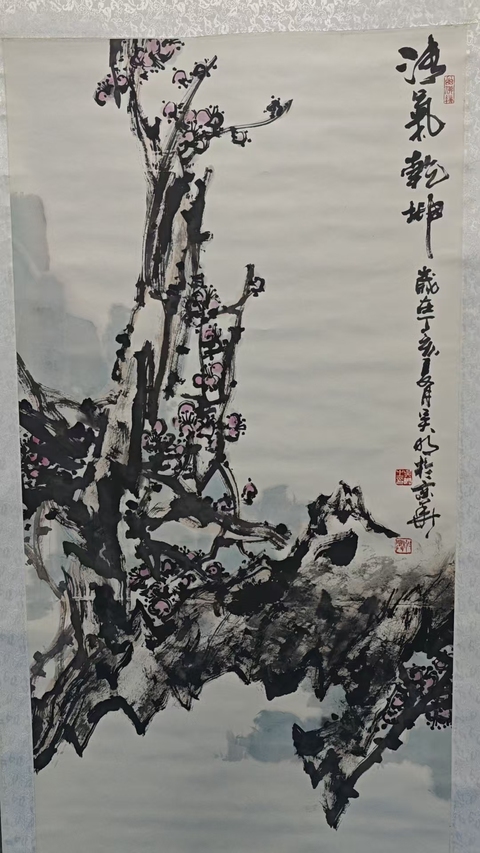 清氣乾坤
歲在丁亥夏月吴明於京華